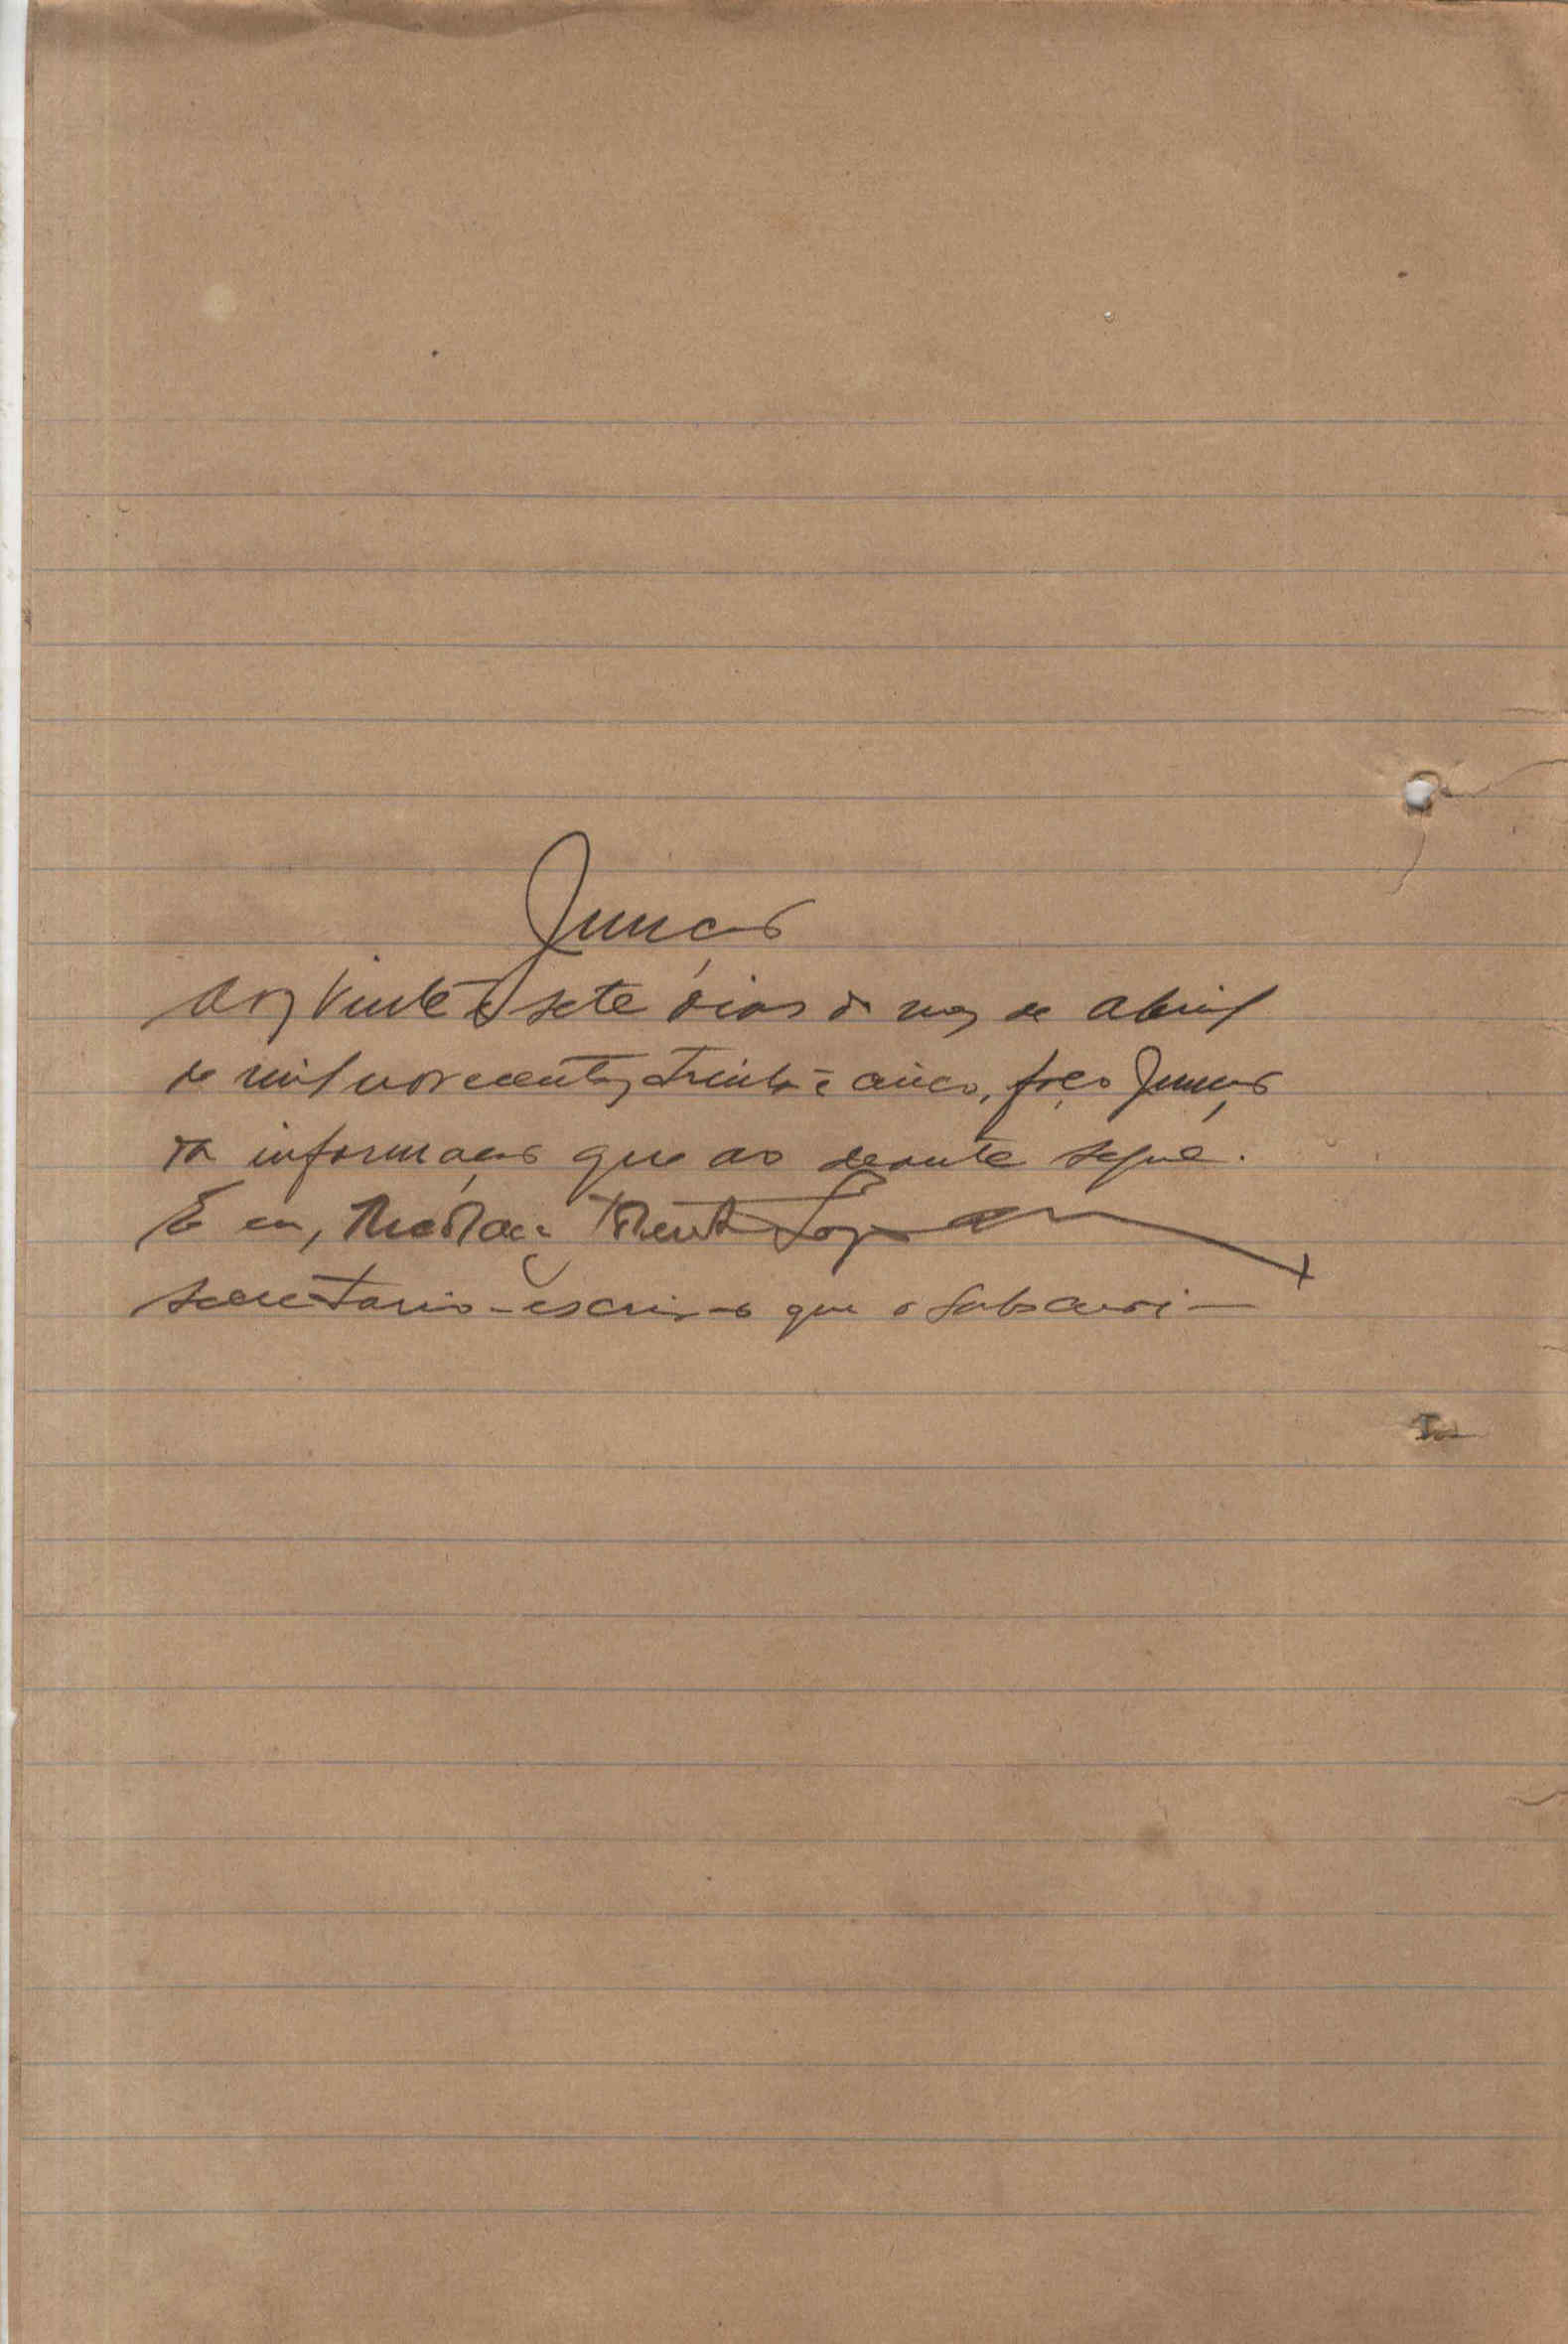 Junção
Aos vinte e sete dias do mez de Abril
de mil novecentos trinta e cinco, faço Junção
da informação que ao deante segue.
E eu,
secretario-escrivão que o subscrevi —